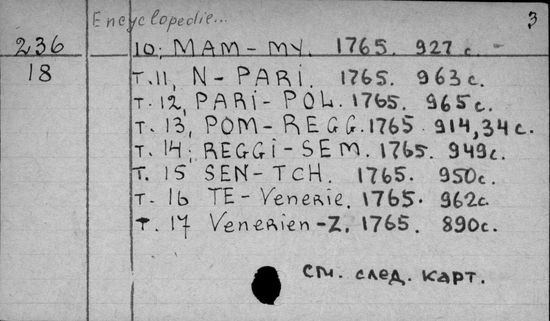 Encyclopedie... 3
236 10; MAM - MY. 1765. 927 с.
18 Т. 11, N - PARI. 1765. 963 с.
Т. 12, PARI - POL. 1765. 965 с.
Т. 13, POM - REGG. 1765. 914, 34 с.
Т. 14; REGGI - SEM. 1765. 949 с.
Т. 15 SEN - TCH. 1765. 950 с.
Т. 16 TE - Venerie. 1765. 962 с.
Т. 17 Venerien - Z. 1765. 890 с.
См. след. карт.